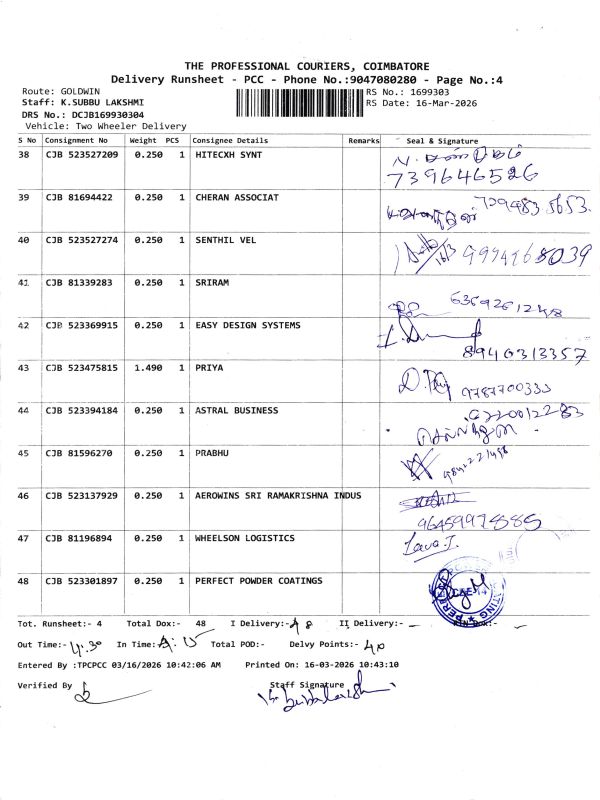 THE PROFESSIONAL COURIERS, COIMBATORE
Delivery Runsheet - PCC - Phone No.:9047080280 - Page No.:4
Route: GOLDWIN RS No.: 1699303
Staff: K.SUBBU LAKSHMI RS Date: 16-Mar-2026
DRS No.: DCJB169930304
Vehicle: Two Wheeler Delivery
S No Consignment No Weight PCS Consignee Details Remarks Seal & Signature
38 CJB 523527209 0.250 1 HITECXH SYNT
739646526
39 CJB 81694422 0.250 1 CHERAN ASSOCIAT
40 CJB 523527274 0.250 1 SENTHIL VEL
41 CJB 81339283 0.250 1 SRIRAM
42 CJB 523369915 0.250 1 EASY DESIGN SYSTEMS
8940313357
43 CJB 523475815 1.490 1 PRIYA
9787700333
44 CJB 523394184 0.250 1 ASTRAL BUSINESS
45 CJB 81596270 0.250 1 PRABHU
46 CJB 523137929 0.250 1 AEROWINS SRI RAMAKRISHNA INDUS
47 CJB 81196894 0.250 1 WHEELSON LOGISTICS Lava.I.
48 CJB 523301897 0.250 1 PERFECT POWDER COATINGS
Tot. Runsheet:- 4 Total Dox:- 48 I Delivery:- 48 II Delivery:- -
Out Time:- 4.30 In Time:- Total POD:- Delvy Points:- 40
Entered By :TPCPCC 03/16/2026 10:42:06 AM Printed On: 16-03-2026 10:43:10
Verified By Staff Signature